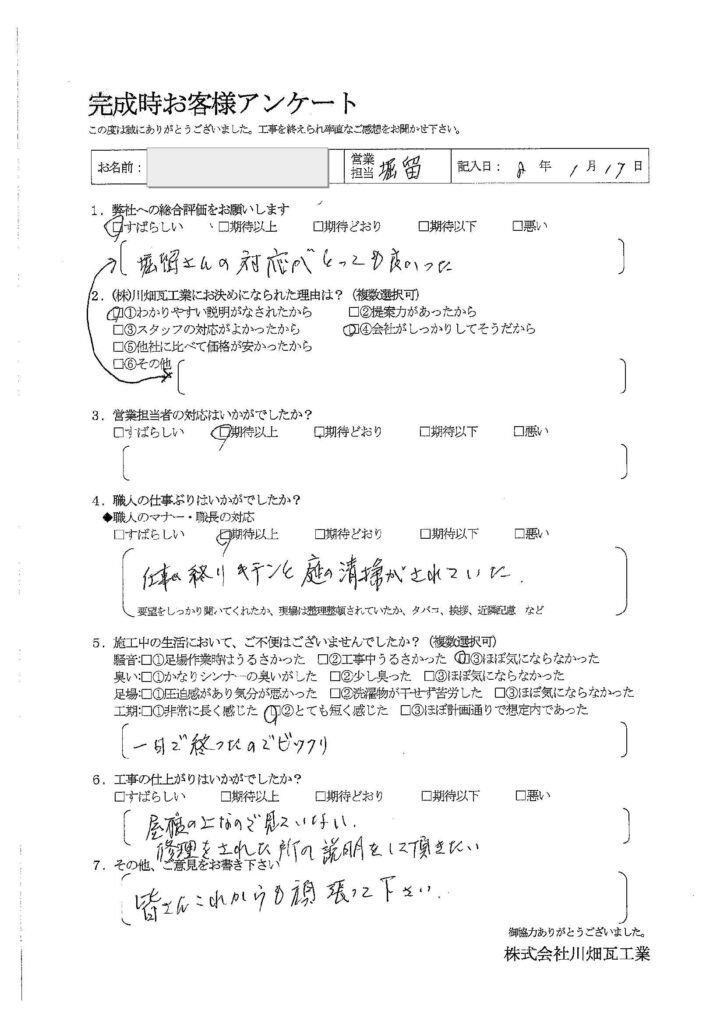 完成時お客様アンケート
この度は誠にありがとうございました。工事を終えられ率直なご感想をお聞かせ下さい。
お名前： 営業担当 堀留 記入日： 2 年 1 月 17 日
1．弊社への総合評価をお願いします
□すばらしい □期待以上 □期待どおり □期待以下 □悪い
堀留さんの対応がとっても良かった
2．(株)川畑瓦工業にお決めになられた理由は？（複数選択可）
□①わかりやすい説明がなされたから □②提案力があったから
□③スタッフの対応がよかったから □④会社がしっかりしてそうだから
□⑤他社に比べて価格が安かったから
□⑥その他
3．営業担当者の対応はいかがでしたか？
□すばらしい □期待以上 □期待どおり □期待以下 □悪い
4．職人の仕事ぶりはいかがでしたか？
◆職人のマナー・職長の対応
□すばらしい □期待以上 □期待どおり □期待以下 □悪い
仕事の終りキチンと庭の清掃がされていた．
要望をしっかり聞いてくれたか、現場は整理整頓されていたか、タバコ、挨拶、近隣配慮　など
5．施工中の生活において、ご不便はございませんでしたか？（複数選択可）
騒音:□①足場作業時はうるさかった □②工事中うるさかった □③ほぼ気にならなかった
臭い:□①かなりシンナーの臭いがした □②少し臭った □③ほぼ気にならなかった
足場:□①圧迫感があり気分が悪かった □②洗濯物が干せず苦労した □③ほぼ気にならなかった
工期:□①非常に長く感じた □②とても短く感じた □③ほぼ計画通りで想定内であった
一日で終ったのでビックリ
6．工事の仕上がりはいかがでしたか？
□すばらしい □期待以上 □期待どおり □期待以下 □悪い
屋根の上なので見ていない．
修理をされた所の説明をして頂きたい
7．その他、ご意見をお書き下さい
皆さんこれからも頑張って下さい．
御協力ありがとうございました。
株式会社川畑瓦工業